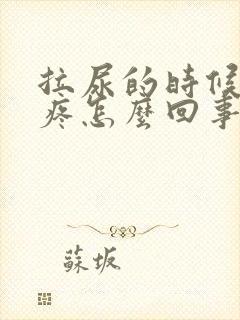 拉尿的時候
疼怎麼回事
蘇坂